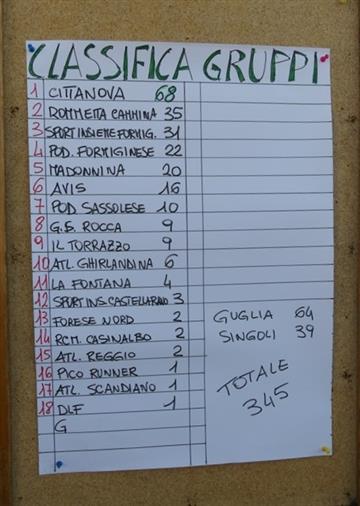 CLASSIFICA GRUPPI
1 CITTANOVA 68
2 ROMMETTA CAMMINA 35
3 SPORTINSIEME FORMIG. 31
4 POD. FORMIGINESE 22
5 MADONNINA 20
6 AVIS 16
7 POD SASSOLESE 10
8 G.S. ROCCA 9
9 IL TORRAZZO 9
10 ATL. GHIRLANDINA 6
11 LA FONTANA 4
12 SPORT INS CASTELLARANO 3
13 FORESE NORD 2
14 RCM. CASINALBO 2
15 ATL. REGGIO 2
16 PICO RUNNER 1
17 ATL. SCANDIANO 1
18 DLF 1
G
GUGLIA 64
SINGOLI 39
TOTALE
345